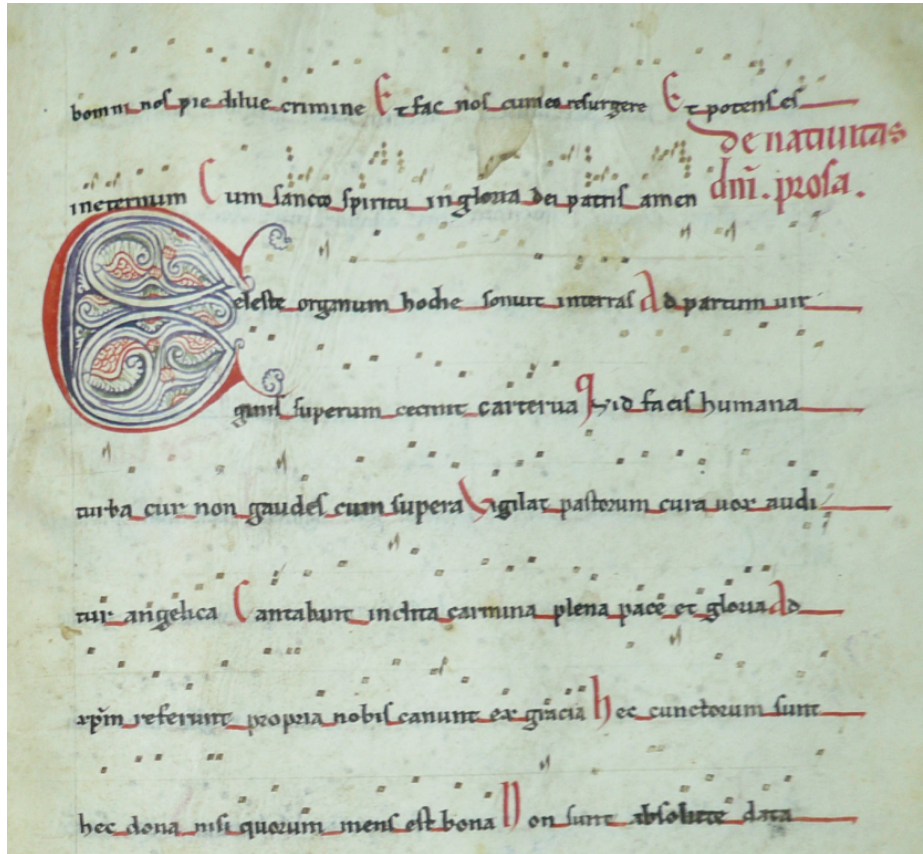 bomni nos pie dilue crimine Et fac nos cum ea resurgere Et potens es
de natiuitas
ineternum Cum sancto spiritu in gloria dei patris amen dnī. prosa.
Celeste organum hodie sonuit interras Ad partum uir
ginis superum cecinit caterua Quid facis humana
turba cur non gaudes cum supera Vigilat pastorum cura uox audi
tur angelica Cantabunt inclita carmina plena pace et gloria Ad
xp̄m referunt propria nobis canunt ex gracia Hec cunctorum sunt
hec dona nisi quorum mens est bona Non sunt absolute data